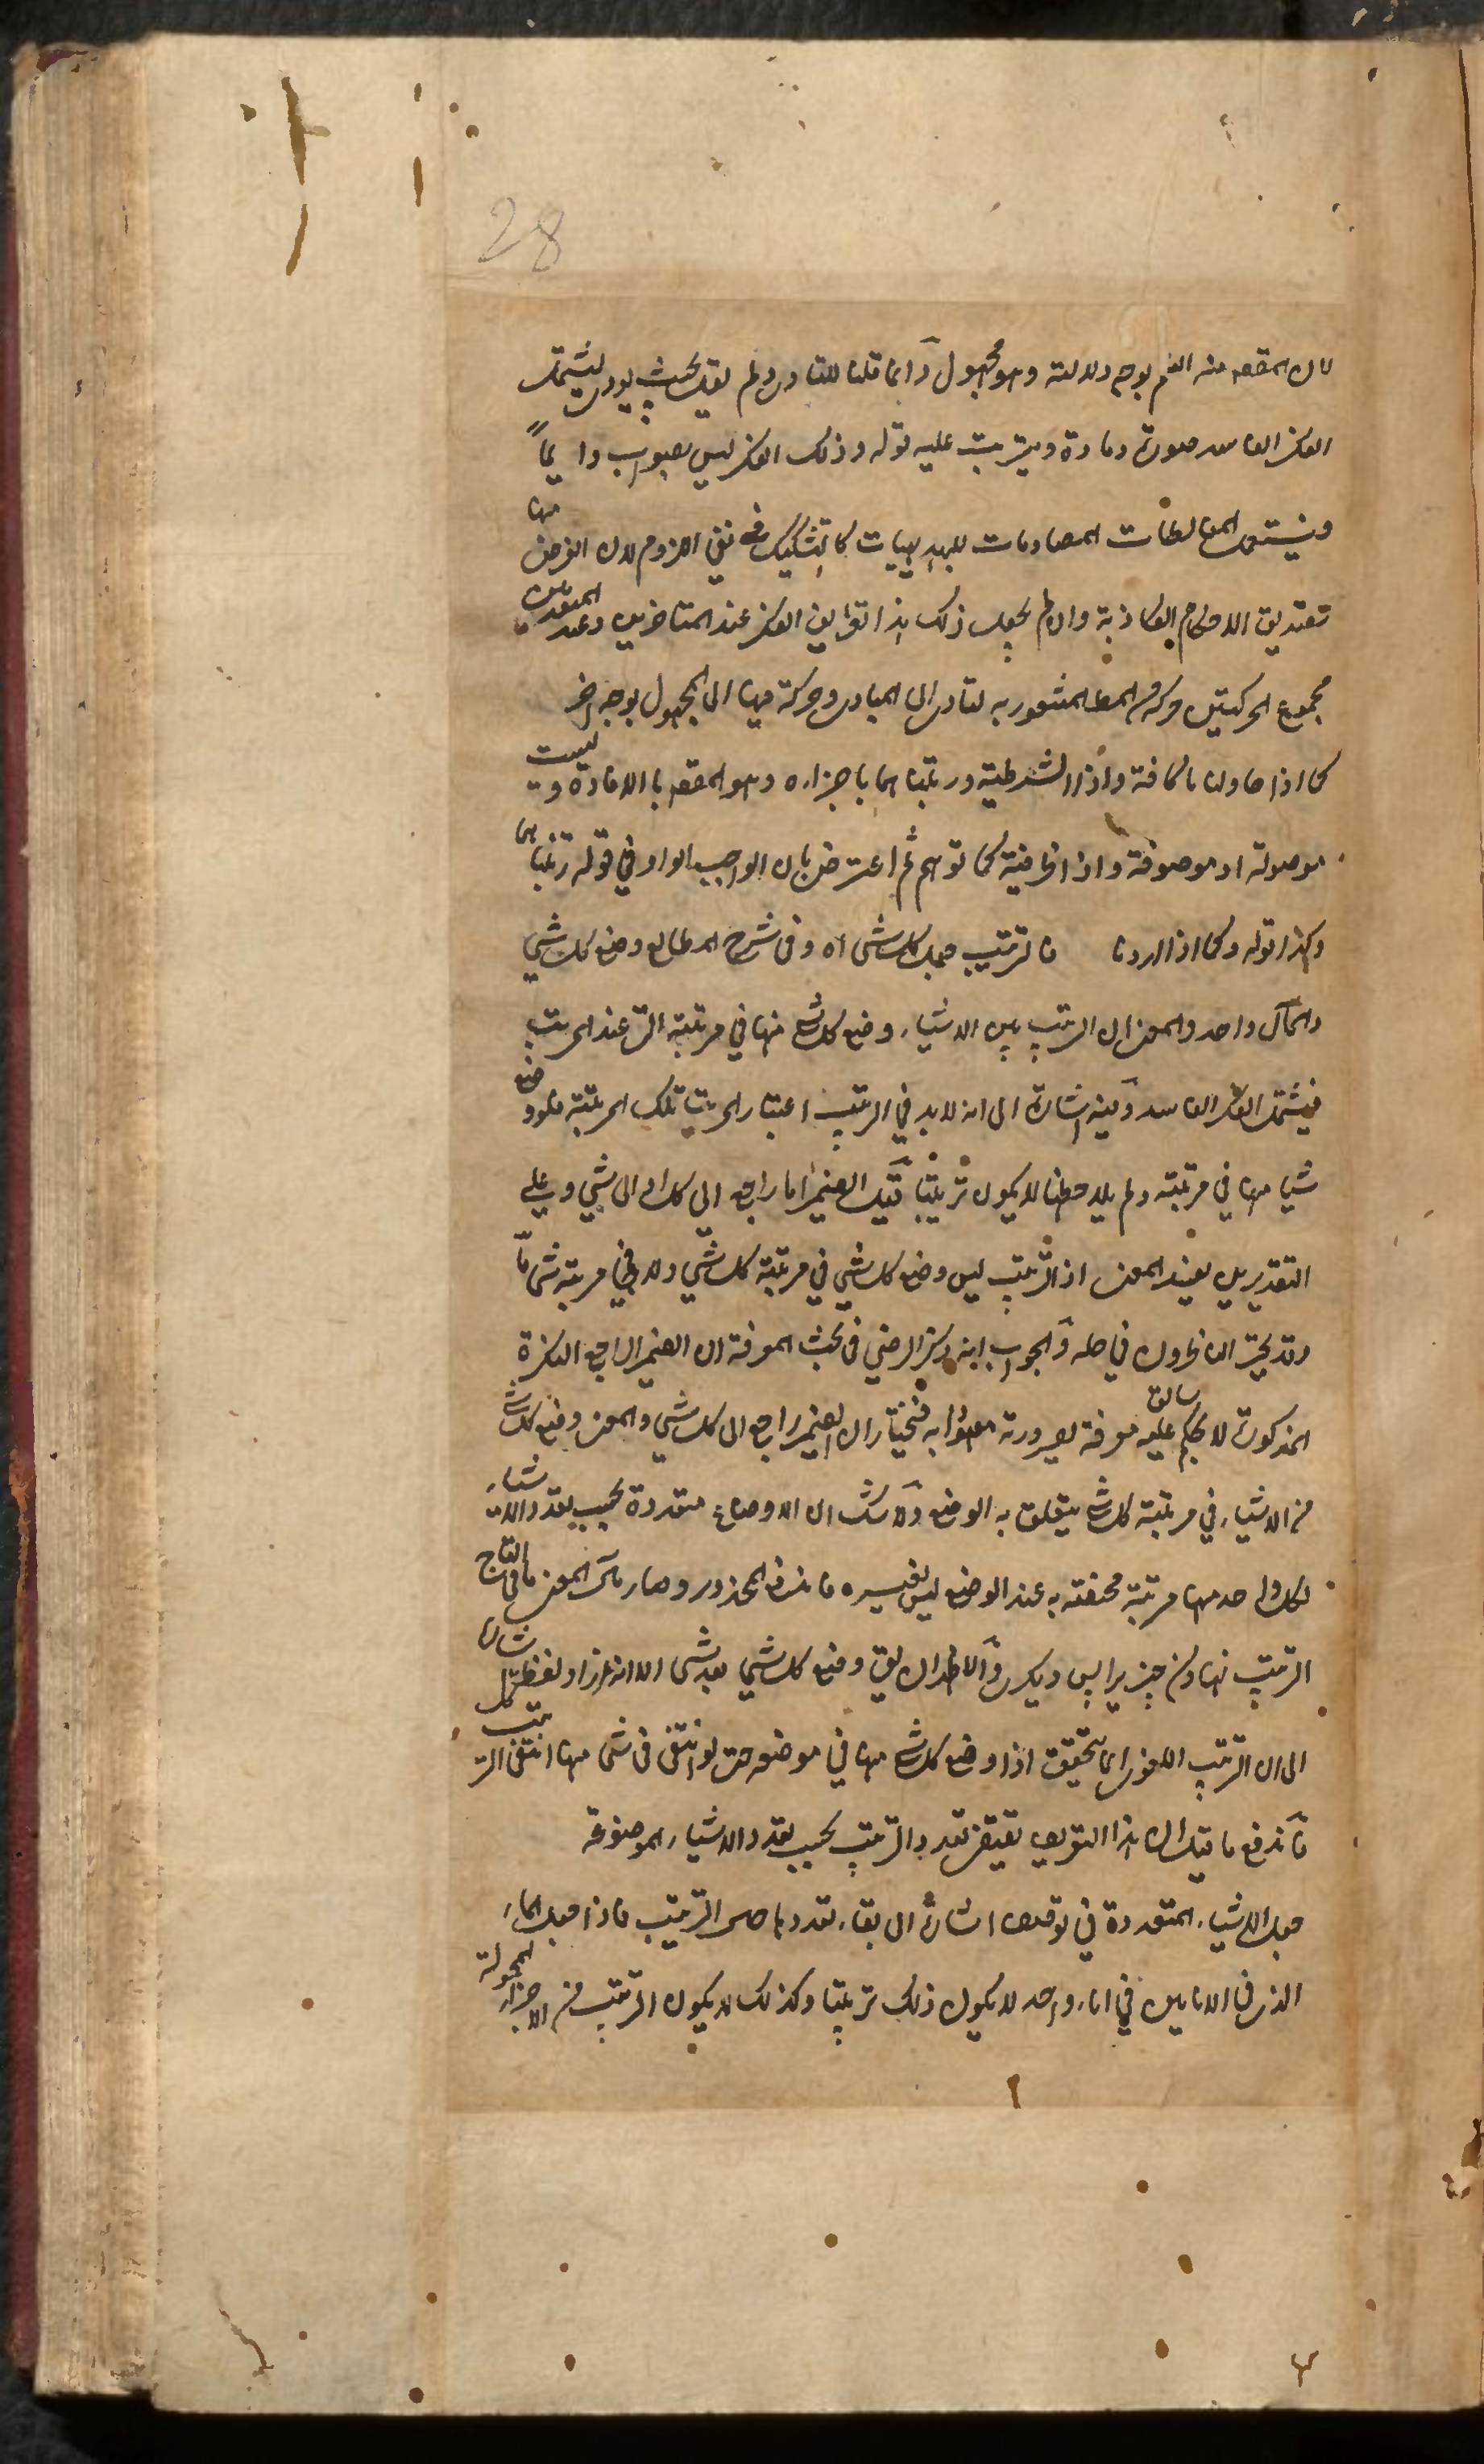 28
لان المقصد منه العلم بوجه دلالته وهو مجهول وانما قلنا للتادى ولم يقل بحيث يودى ليشتمل
الفكر الفاسد صورة ومادة ويترتب عليه قوله وذلك الفكر ليس بصواب دايماً
ويشتمل المغالطات المصادمات للبديهيات كالتشكيك فى نفى اللزوم لان الغرض منها
تصديق الاحكام الكاذبة وان لم يحصل ذلك هذا تعريف الفكر عند المتاخرين وعند المتقدمين
مجموع الحركتين حركة من المط المشعور به لتادى الى المبادى وحركة منها الى المجهول بوجه اخر
كما اذا حاولنا ما كافة واذا الشرطية ورتبناهما باجزاء وهو المقصد بالافادة وليست
موصولة او موصوفة واذا ظرفية كما توهم ثم اعترض بان الواجب الواو في قوله رتبناهما
وكذا قوله وكما اذا اردنا فالترتيب جعل كل شى اه وفى شرح المطالع وضع كل شي
والمآل واحد والمعنى ان الترتيب بين الاشياء وضع كل شى منها في مرتبة التى عند المرتب
فيشتمل الفكر الفاسد وفيه اشارة الى انه لابد في الترتيب اعتبار المرتب تلك المرتبة فلو وضع
شيا منها في مرتبته ولم يلاحظها لا يكون ترتيبا قيل الضمير اما راجع الى كل او الى شي وعلى
التقديرين يفسد المعنى اذ الترتيب ليس وضع كل شي في مرتبة كل شي ولا في مرتبة شى ما
وقد تحير الناظرون في حله والجواب انه ذكر الرضي فى بحث المعرفة ان الضمير الراجع النكرة
المذكورة لا بحكم عليه سابق معرفة لصيرورته معهودا به فنختار ان الضمير راجع الى كل شي والمعنى وضع كل شى
من الاشياء في مرتبة كل شى يتعلق به الوضع ولا شك ان الاوضاع متعددة بحسب تعدد الاشياء
لكل واحد منها مرتبة مختصة به عند الوضع ليس لغيره فاندفع المحذور وصار مآل المعنى ما فى التاج
الترتيب نهادن چيز پس ديكرى والاظهر ان يق وضع كل شي بعد شى الا انه زاد لفظ كل اشارة
الى ان الترتيب اللغوى انما يتحقق اذا وضع كل شى منها في موضعه حتى لو انتفى فى شى منها انتفى الترتيب
فاندفع ما قيل ان هذا التعريف يقتضى تعدد الترتيب بحسب تعدد الاشياء الموضوعة
جعل الاشياء المتعددة في توقف اشارة الى بقاء تعددها حين الترتيب فاذا جعل الماء
الذى فى الانائين في اناء واحد لا يكون ذلك ترتيبا وكذلك لا يكون الترتيب من الاجزاء المحمولة